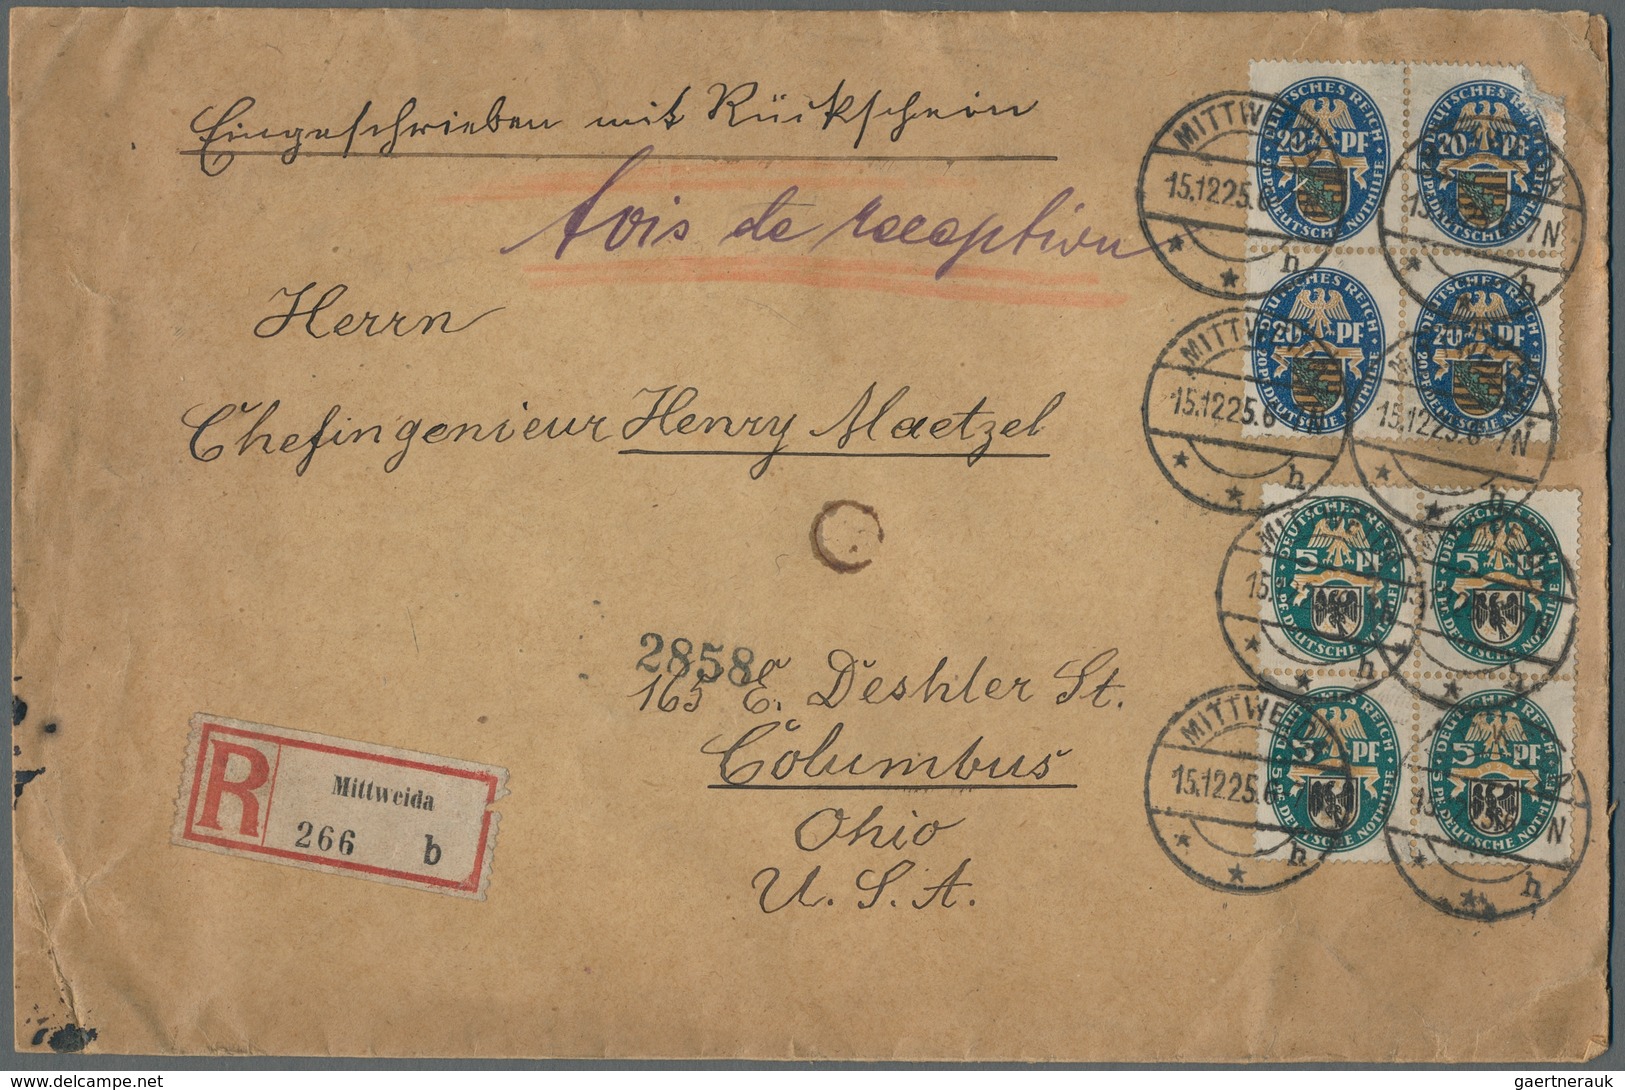 Eingeschrieben mit Rückschein
Avis de reception
Herrn
Chefingenieur Henry Maetzel
2858
165 E. Deshler St.
Columbus
Ohio
U. S. A.
R
Mittweida
266 b
DEUTSCHES REICH
20 PF
20 PF. DEUTSCHE NOTHILFE
DEUTSCHES REICH
20 PF
20 PF. DEUTSCHE NOTHILFE
DEUTSCHES REICH
20 PF
20 PF. DEUTSCHE NOTHILFE
DEUTSCHES REICH
20 PF
20 PF. DEUTSCHE NOTHILFE
DEUTSCHES REICH
5 PF
5 PF. DEUTSCHE NOTHILFE
DEUTSCHES REICH
5 PF
5 PF. DEUTSCHE NOTHILFE
DEUTSCHES REICH
5 PF
5 PF. DEUTSCHE NOTHILFE
DEUTSCHES REICH
5 PF
5 PF. DEUTSCHE NOTHILFE
MITTWEIDA
15.12.25.6-7N
h
delcampe.net
gaertnerauk